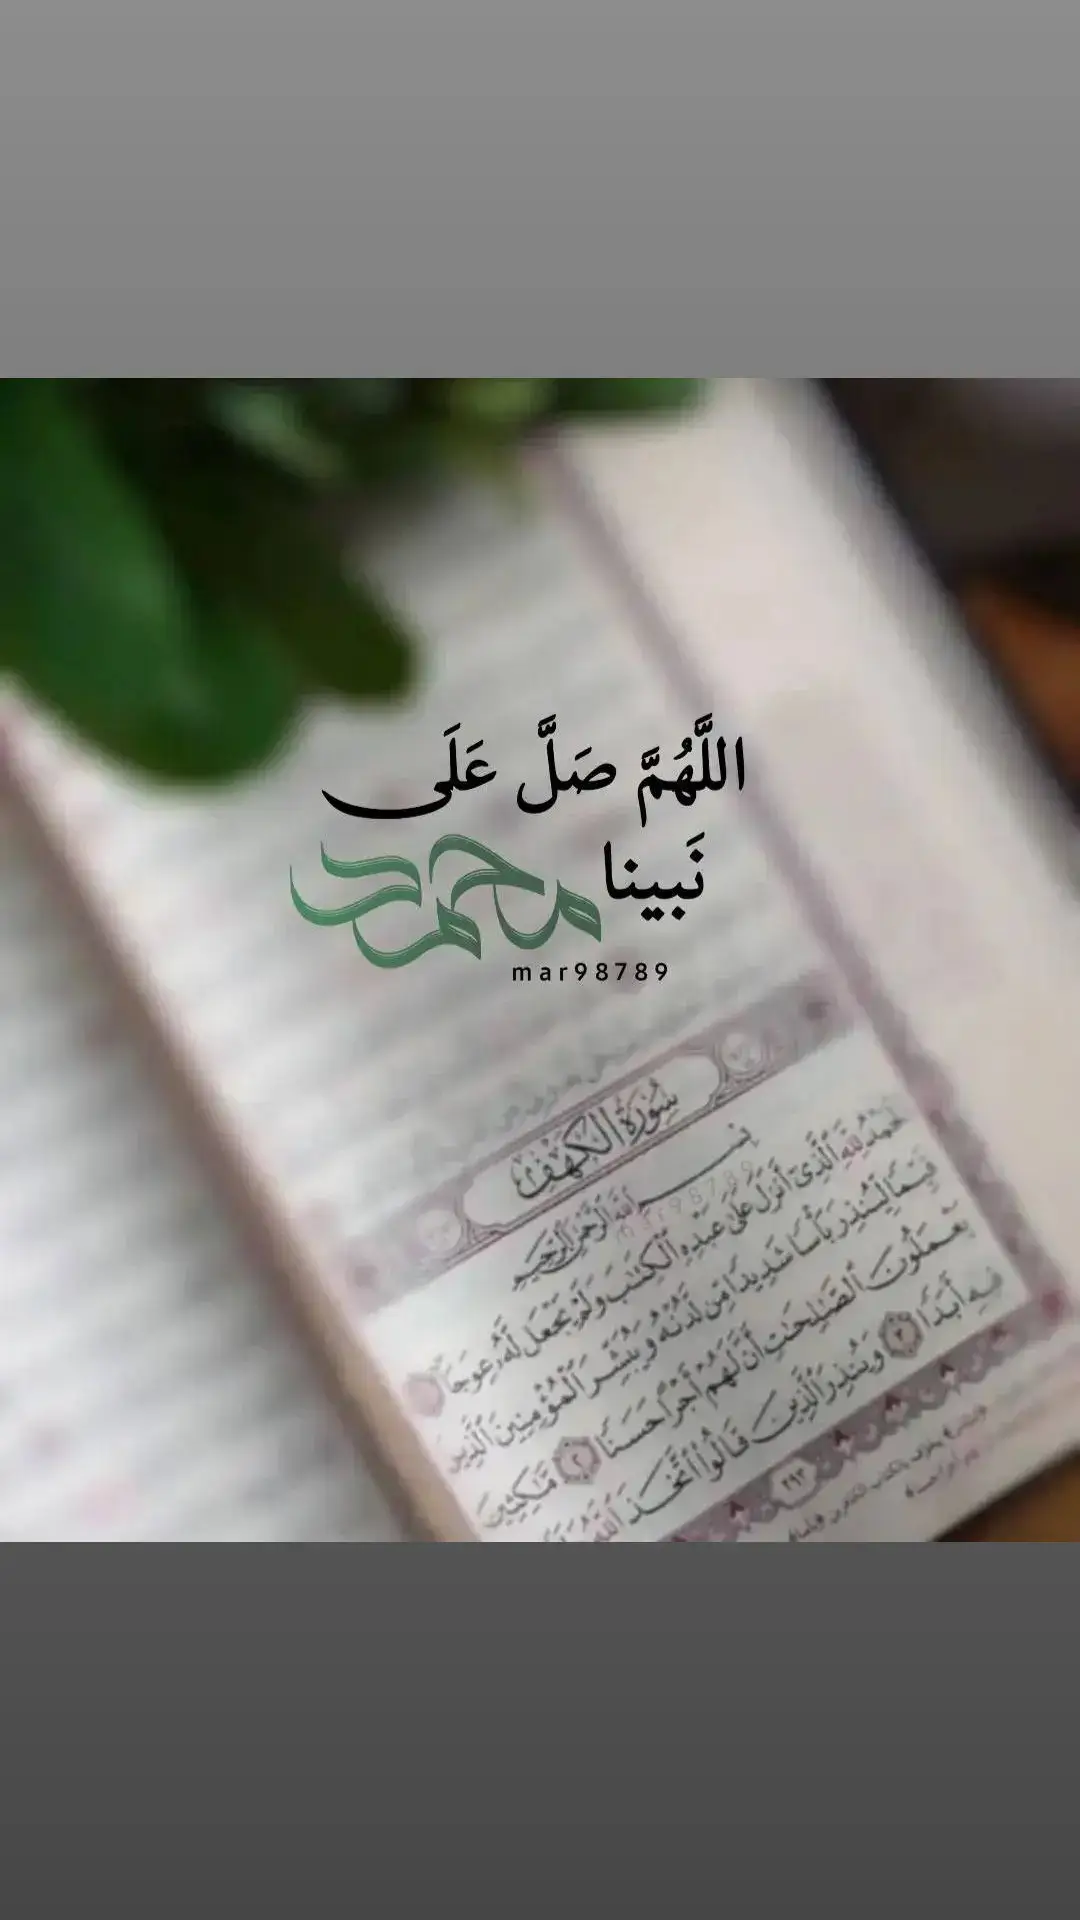 اللَّهُمَّ صَلَّ عَلَى
نَبينا محمد
mar98789
سُورَةُ الكَهْفِ
بِسْمِ اللَّهِ الرَّحْمَٰنِ الرَّحِيمِ
الْحَمْدُ لِلَّهِ الَّذِي أَنزَلَ عَلَىٰ عَبْدِهِ الْكِتَٰبَ وَلَمْ يَجْعَل لَّهُ عِوَجَا
قَيِّمًا لِّيُنذِرَ بَأْسًا شَدِيدًا مِّن لَّدُنْهُ وَيُبَشِّرَ الْمُؤْمِنِينَ الَّذِينَ
يَعْمَلُونَ الصَّٰلِحَٰتِ أَنَّ لَهُمْ أَجْرًا حَسَنًا ٢ مَّٰكِثِينَ
فِيهِ أَبَدًا ٣ وَيُنذِرَ الَّذِينَ قَالُوا اتَّخَذَ اللَّهُ
٢٩٣